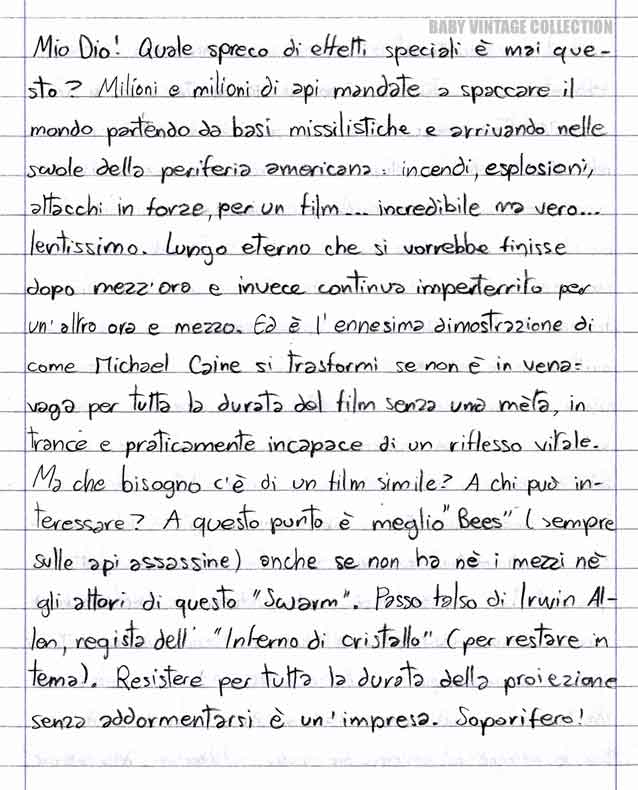 BABY VINTAGE COLLECTION
Mio Dio! Quale spreco di effetti speciali è mai que-
sto? Milioni e milioni di api mandate a spaccare il
mondo partendo da basi missilistiche e arrivando nelle
scuole della periferia americana: incendi, esplosioni,
attacchi in forze, per un film... incredibile ma vero...
lentissimo. Lungo eterno che si vorrebbe finisse
dopo mezz'ora e invece continua imperterrito per
un'altra ora e mezzo. Ed è l'ennesima dimostrazione di
come Michael Caine si trasformi se non è in vena:
vaga per tutta la durata del film senza una mèta, in
trance e praticamente incapace di un riflesso vitale.
Ma che bisogno c'è di un film simile? A chi può in-
teressare? A questo punto è meglio "Bees" (sempre
sulle api assassine) anche se non ha nè i mezzi nè
gli attori di questo "Swarm". Passo falso di Irwin Al-
len, regista dell' "Inferno di cristallo" (per restare in
tema). Resistere per tutta la durata della proiezione
senza addormentarsi è un'impresa. Soporifero!